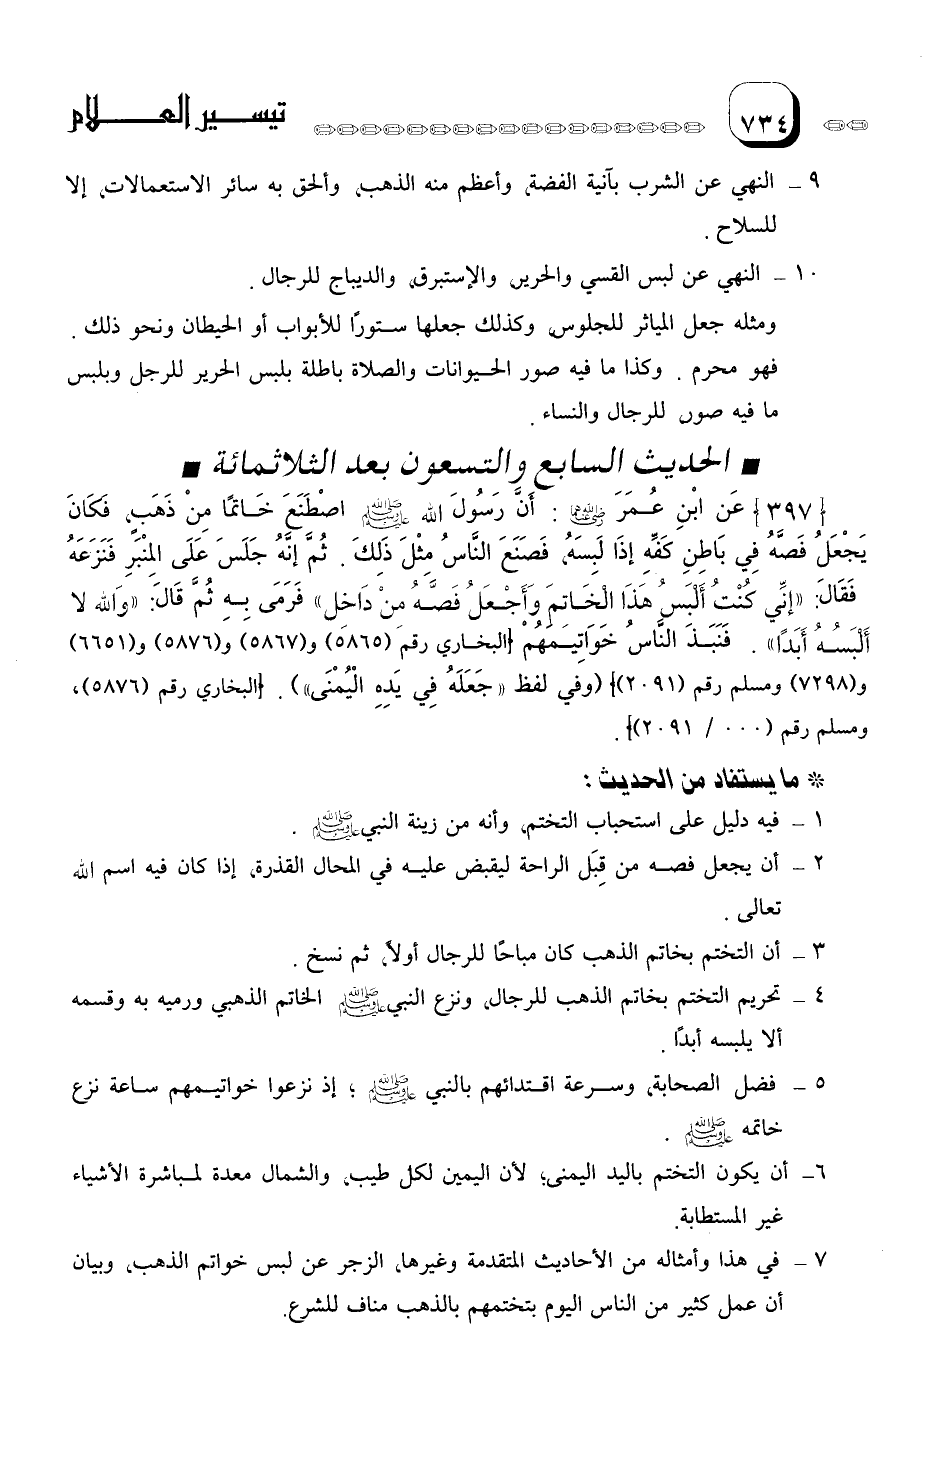 تيسير العلام
٧٣٤
٩ - النهي عن الشرب بآنية الفضة، وأعظم منه الذهب، وألحق به سائر الاستعمالات، إلا
للسلاح .
١٠ - النهي عن لبس القسي والحرير، والإستبرق، والديباج للرجال .
ومثله جعل المياثر للجلوس، وكذلك جعلها ستورًا للأبواب أو الحيطان ونحو ذلك .
فهو محرم . وكذا ما فيه صور الحيوانات والصلاة باطلة بلبس الحرير للرجل وبلبس
ما فيه صور، للرجال والنساء .
■ الحديث السابع والتسعون بعد الثلاثمائة ■
{٣٩٧} عَن ابْنِ عُمَرَ رضي الله عنهما : أَنَّ رَسُولَ الله ﷺ اصْطَنَعَ خَاتمًا مِنْ ذَهَبٍ، فَكَانَ
يَجْعَلُ فَصَّهُ فِي بَاطِنِ كَفِّهِ إذَا لَبِسَهُ، فَصَنَعَ النَّاسُ مِثْلَ ذَلِكَ . ثُمَّ إنَّهُ جَلَسَ عَلَى المِنْبَرِ فَنَزَعَهُ
فَقَالَ: «إنِّي كُنْتُ أَلْبَسُ هَذَا الْخَاتمَ وَأَجْعَلُ فَصَّهُ مِنْ دَاخِلٍ» فَرَمَى بِهِ ثُمَّ قَالَ: «وَالله لا
أَلْبَسُهُ أَبَدًا» . فَنَبَذَ النَّاسُ خَوَاتِيمَهُمْ {البخاري رقم (٥٨٦٥) و(٥٨٦٧) و(٥٨٧٦) و(٦٦٥١)
و(٧٢٩٨) ومسلم رقم (٢٠٩١)} (وفي لفظ «جَعَلَهُ فِي يَدِهِ الْيُمْنَى») . {البخاري رقم (٥٨٧٦)،
ومسلم رقم (٠٠٠ / ٢٠٩١)} .
* ما يستفاد من الحديث :
١ - فيه دليل على استحباب التختم، وأنه من زينة النبي ﷺ .
٢ - أن يجعل فصه من قِبَل الراحة ليقبض عليه في المحال القذرة، إذا كان فيه اسم الله
تعالى .
٣ - أن التختم بخاتم الذهب كان مباحًا للرجال أولاً، ثم نسخ .
٤ - تحريم التختم بخاتم الذهب للرجال، ونزع النبي ﷺ الخاتم الذهبي ورميه به وقسمه
ألا يلبسه أبدًا .
٥ - فضل الصحابة، وسرعة اقتدائهم بالنبي ﷺ ؛ إذ نزعوا خواتيمهم ساعة نزع
خاتمه ﷺ .
٦- أن يكون التختم باليد اليمنى؛ لأن اليمين لكل طيب، والشمال معدة لمباشرة الأشياء
غير المستطابة.
٧ - في هذا وأمثاله من الأحاديث المتقدمة وغيرها، الزجر عن لبس خواتم الذهب، وبيان
أن عمل كثير من الناس اليوم بتختمهم بالذهب مناف للشرع.